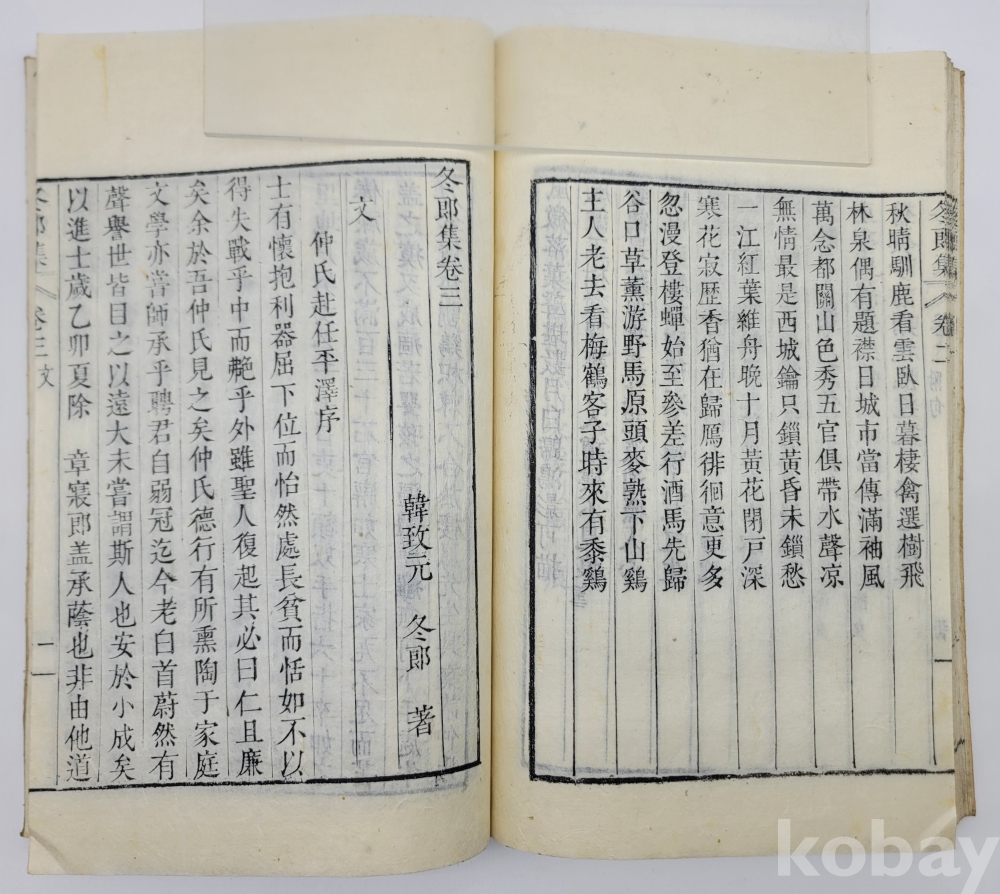 冬郎集 卷二
秋晴馴鹿看雲臥日暮棲禽選樹飛
林泉偶有題襟日城市當傳滿袖風
萬念都關山色秀五官俱帶水聲凉
無情最是西城鑰只鎖黃昏未鎖愁
一江紅葉維舟晚十月黃花閉戶深
寒花寂歷香猶在歸鴈徘徊意更多
忽漫登樓蟬始至參差行酒馬先歸
谷口草薰游野馬原頭麥熟下山鷄
主人老去看梅鶴客子時來有黍鷄
冬郎集卷三
韓致元 冬郎 著
文
仲氏赴任平澤序
士有懷抱利器屈下位而怡然處長貧而恬如不以
得失戰乎中而艴乎外雖聖人復起其必曰仁且廉
矣余於吾仲氏見之矣仲氏德行有所熏陶于家庭
文學亦善師承乎聘君自弱冠迄今老白首蔚然有
聲擧世皆目之以遠大未嘗謂斯人也安於小成矣
以進士歲乙卯夏除 章寢郎盖承蔭也非由他道
冬郎集 卷三 文
一
kobay